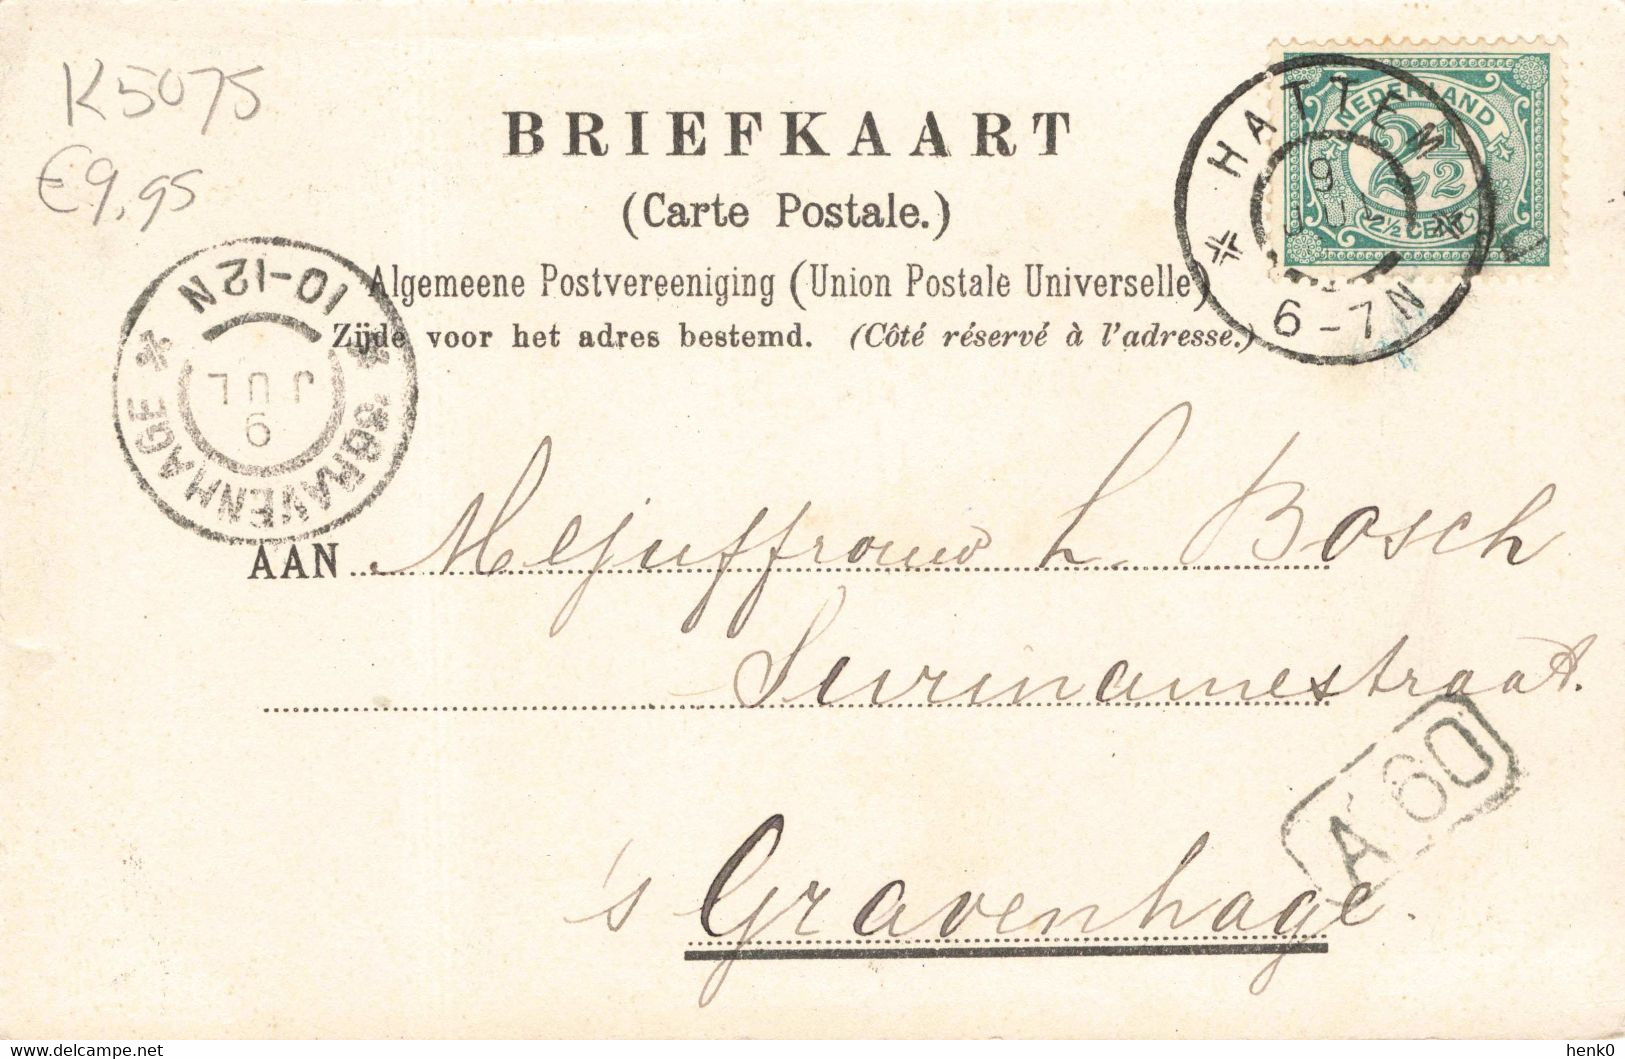 K5075
€9,95
BRIEFKAART
(Carte Postale.)
Algemeene Postvereeniging (Union Postale Universelle)
Zijde voor het adres bestemd. (Côté réservé à l'adresse.)
NEDERLAND
2 1/2
2½ CENT
HATTEM
9
6-7N
10-12N
JUL
9
'S GRAVENHAGE
AAN Mejuffrouw L. Bosch
Surinamestraat.
's Gravenhage.
A 60
delcampe.net
henk0